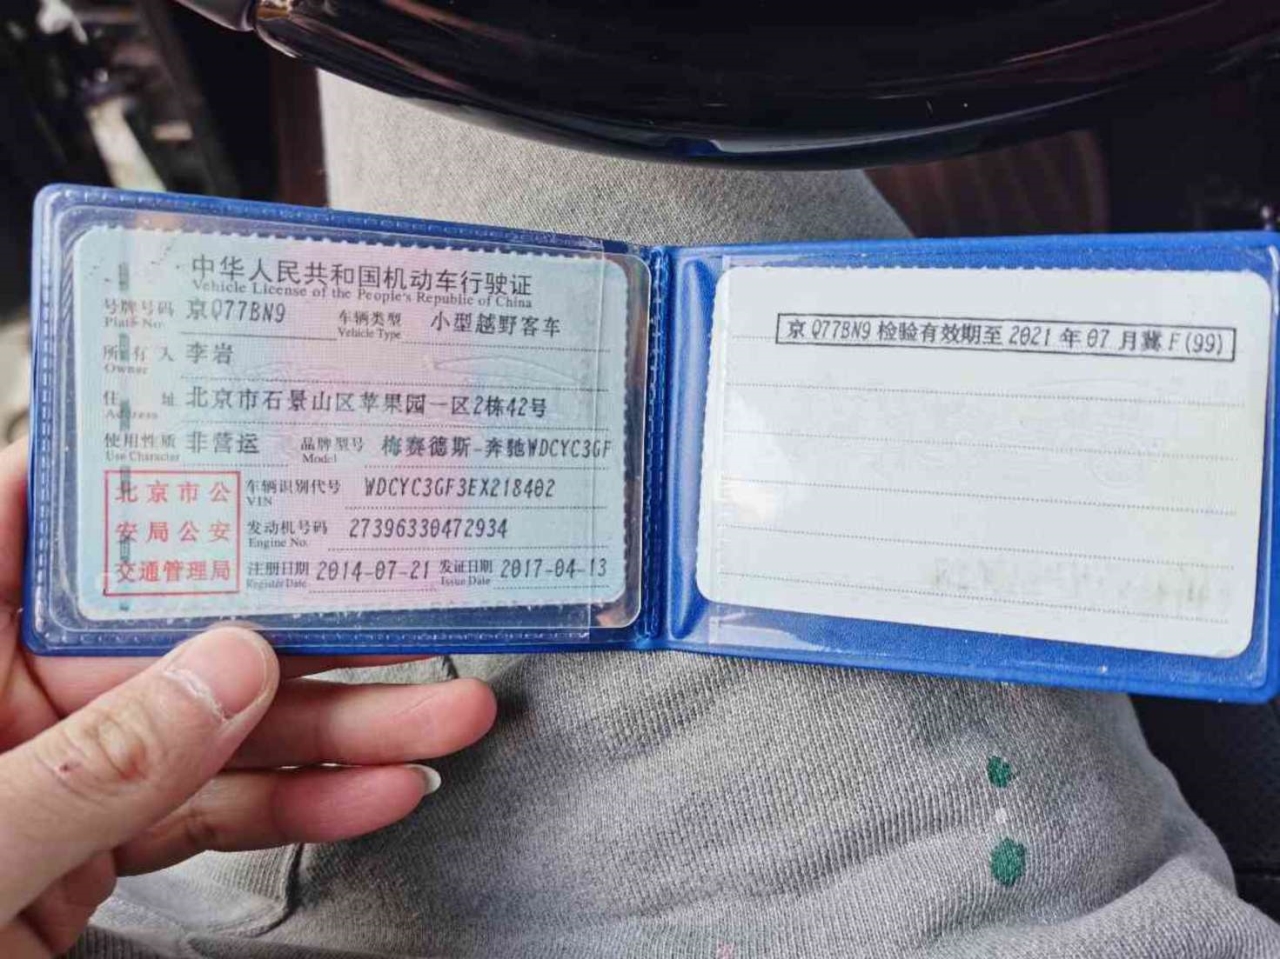 中华人民共和国机动车行驶证
Vehicle License of the People's Republic of China
号牌号码 京Q77BN9 车辆类型 小型越野客车
Plate No. Vehicle Type
所有人 李岩
Owner
住址 北京市石景山区苹果园一区2栋42号
Address
使用性质 非营运 品牌型号 梅赛德斯-奔驰WDCYC3GF
Use Character Model
北京市公
安局公安
交通管理局
车辆识别代号 WDCYC3GF3EX218402
VIN
发动机号码 27396330472934
Engine No.
注册日期 2014-07-21 发证日期 2017-04-13
Register Date Issue Date
京Q77BN9 检验有效期至 2021 年 07 月冀 F(99)